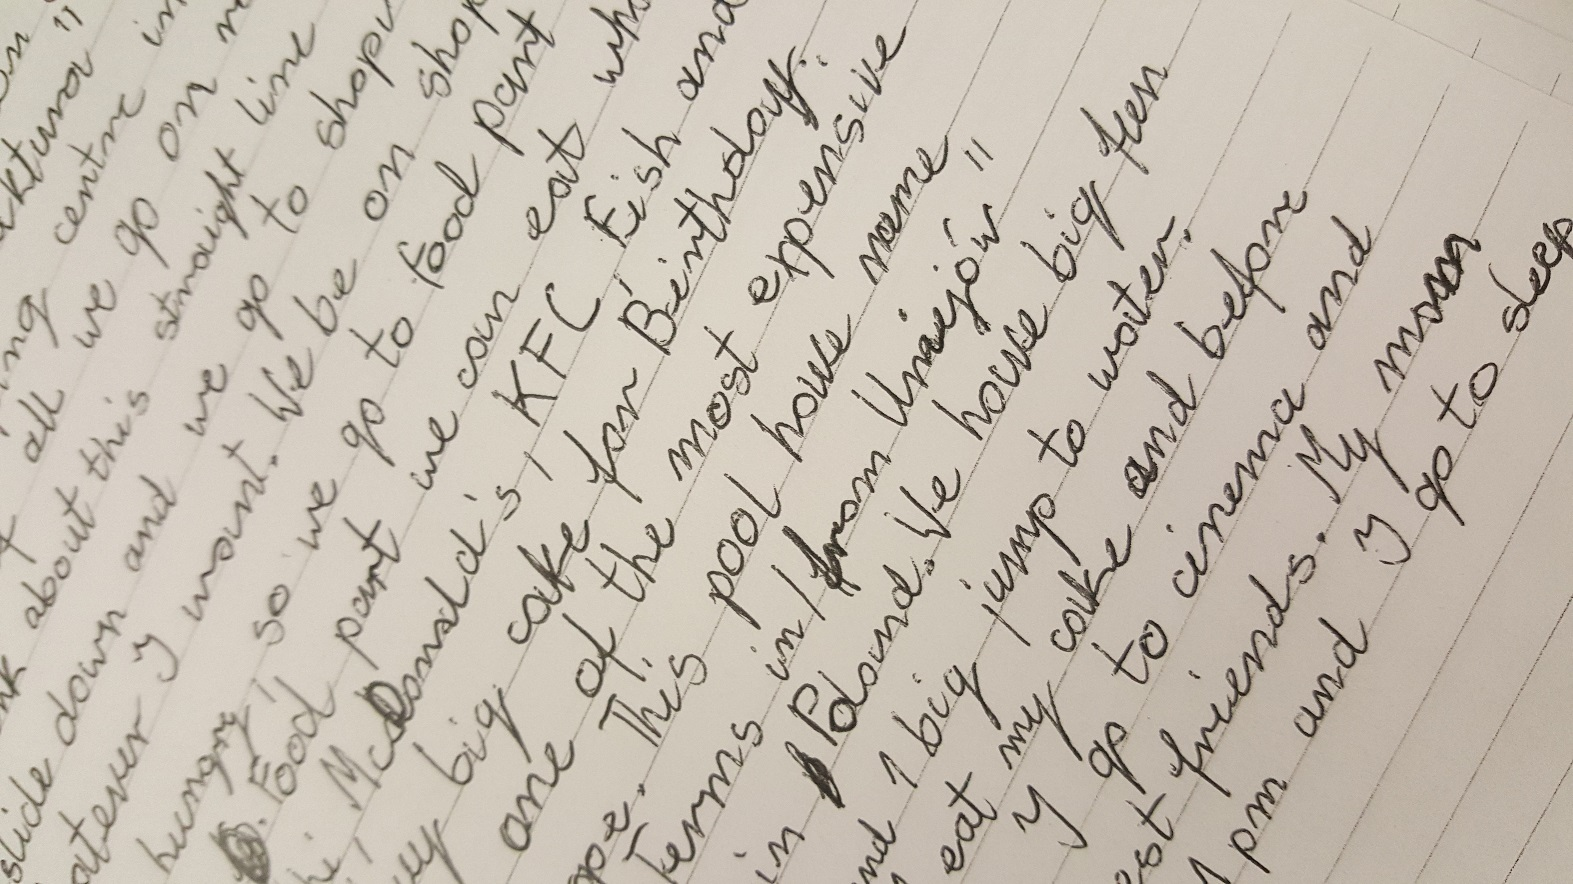 aktura"
centre in
all we go on
about this straight line
slide down and we go to shop
whatever y want. We be on shop
hungry, so we go to food part
Food part we can eat
McDonald's, KFC, Fish and
big cake for Birthday.
one of the most expensive
This pool have name
Terms in/from Uniejów"
in Poland. We have big fun
and 1 big jump to water.
eat my cake and before
y go to cinema and
friends. My mom
pm and y go to sleep